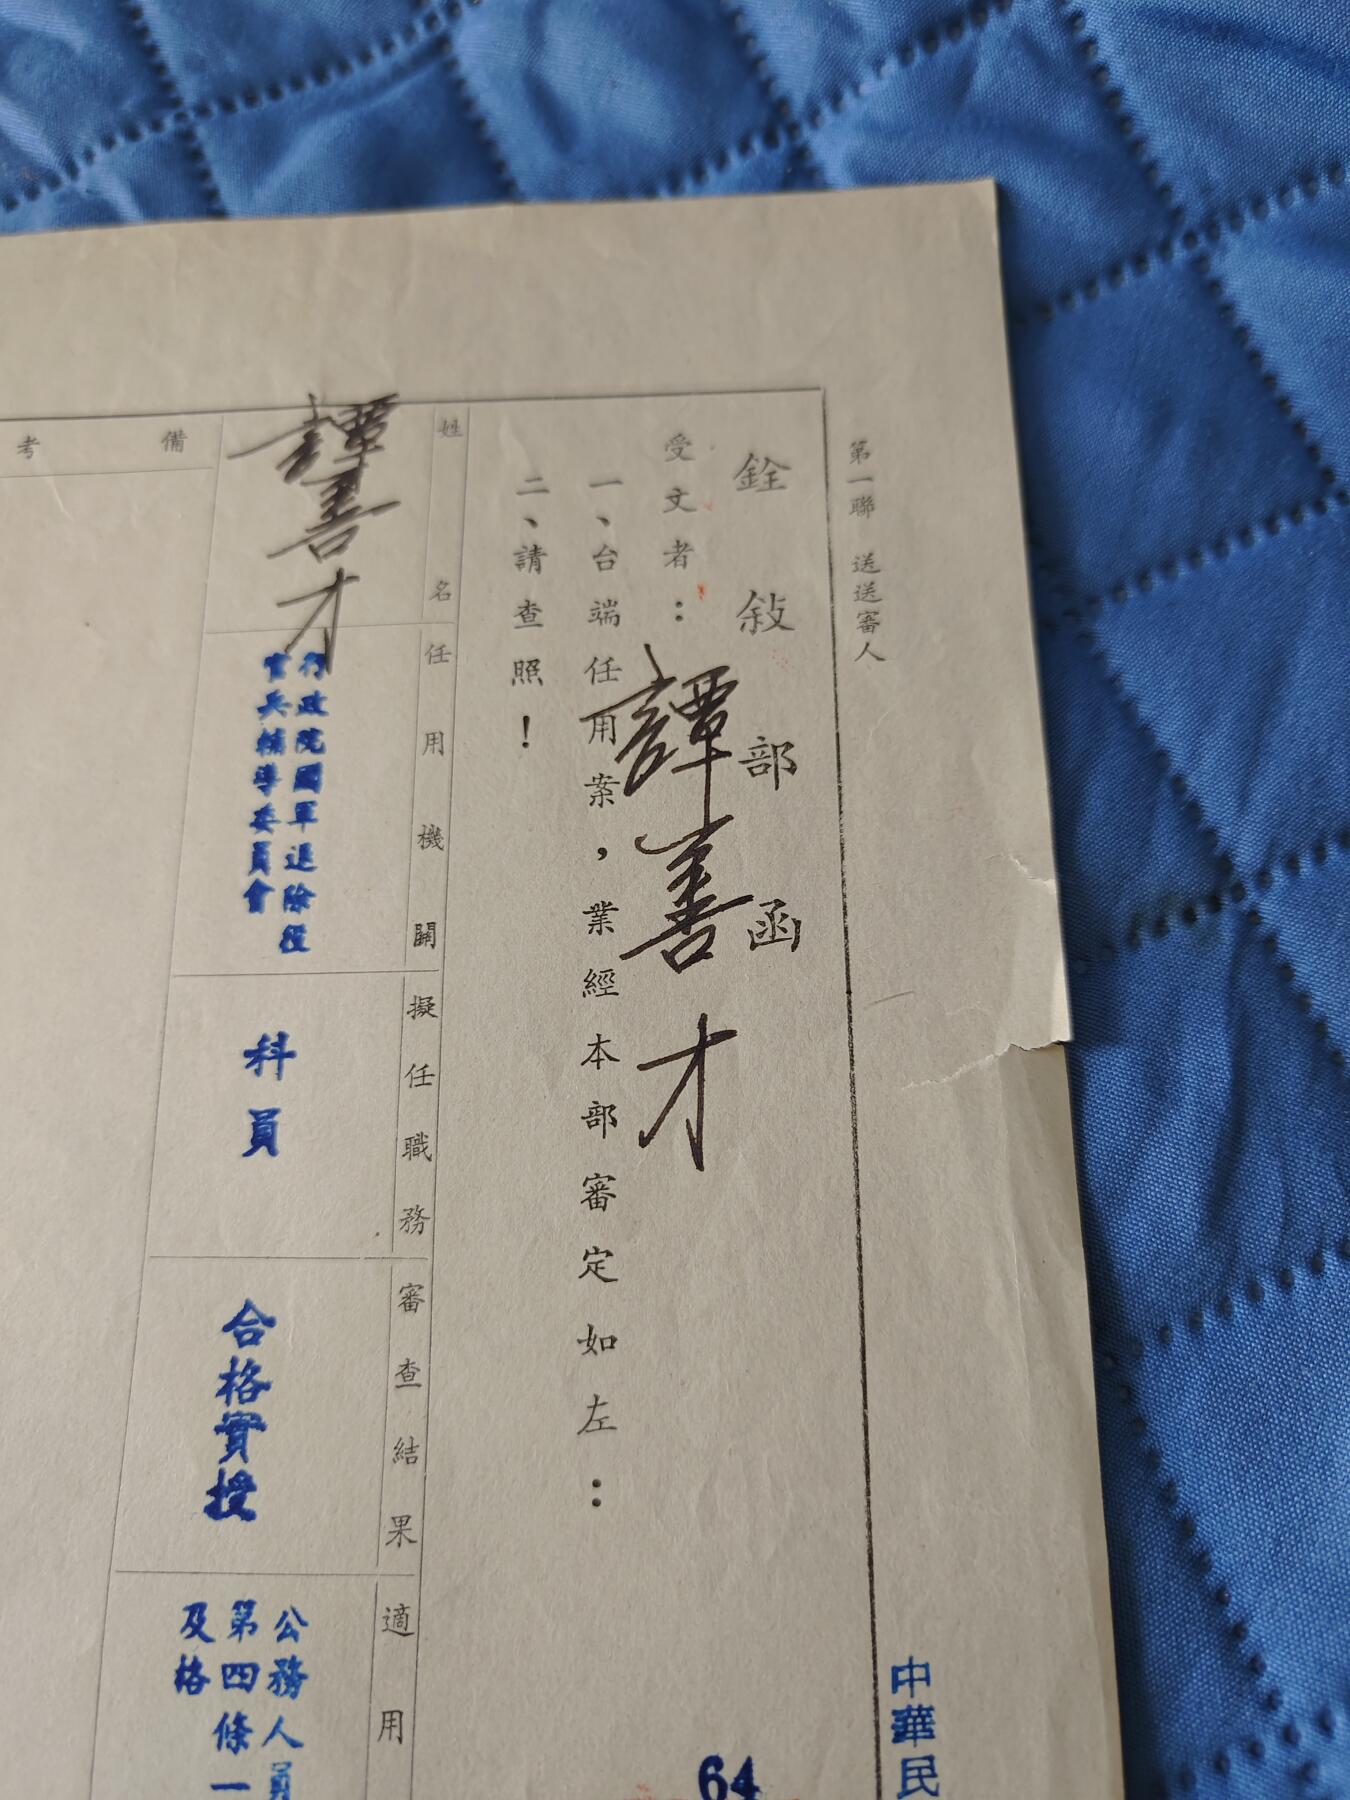 第一聯 送送審人
中華民
銓敍部函
64
受文者：譚善才
一、台端任用案，業經本部審定如左：
二、請查照！
姓名
任用機關
擬任職務
審查結果
適用
譚善才
行政院國軍退除役
官兵輔導委員會
科員
合格實授
公務人員
第四條一
及格
備考